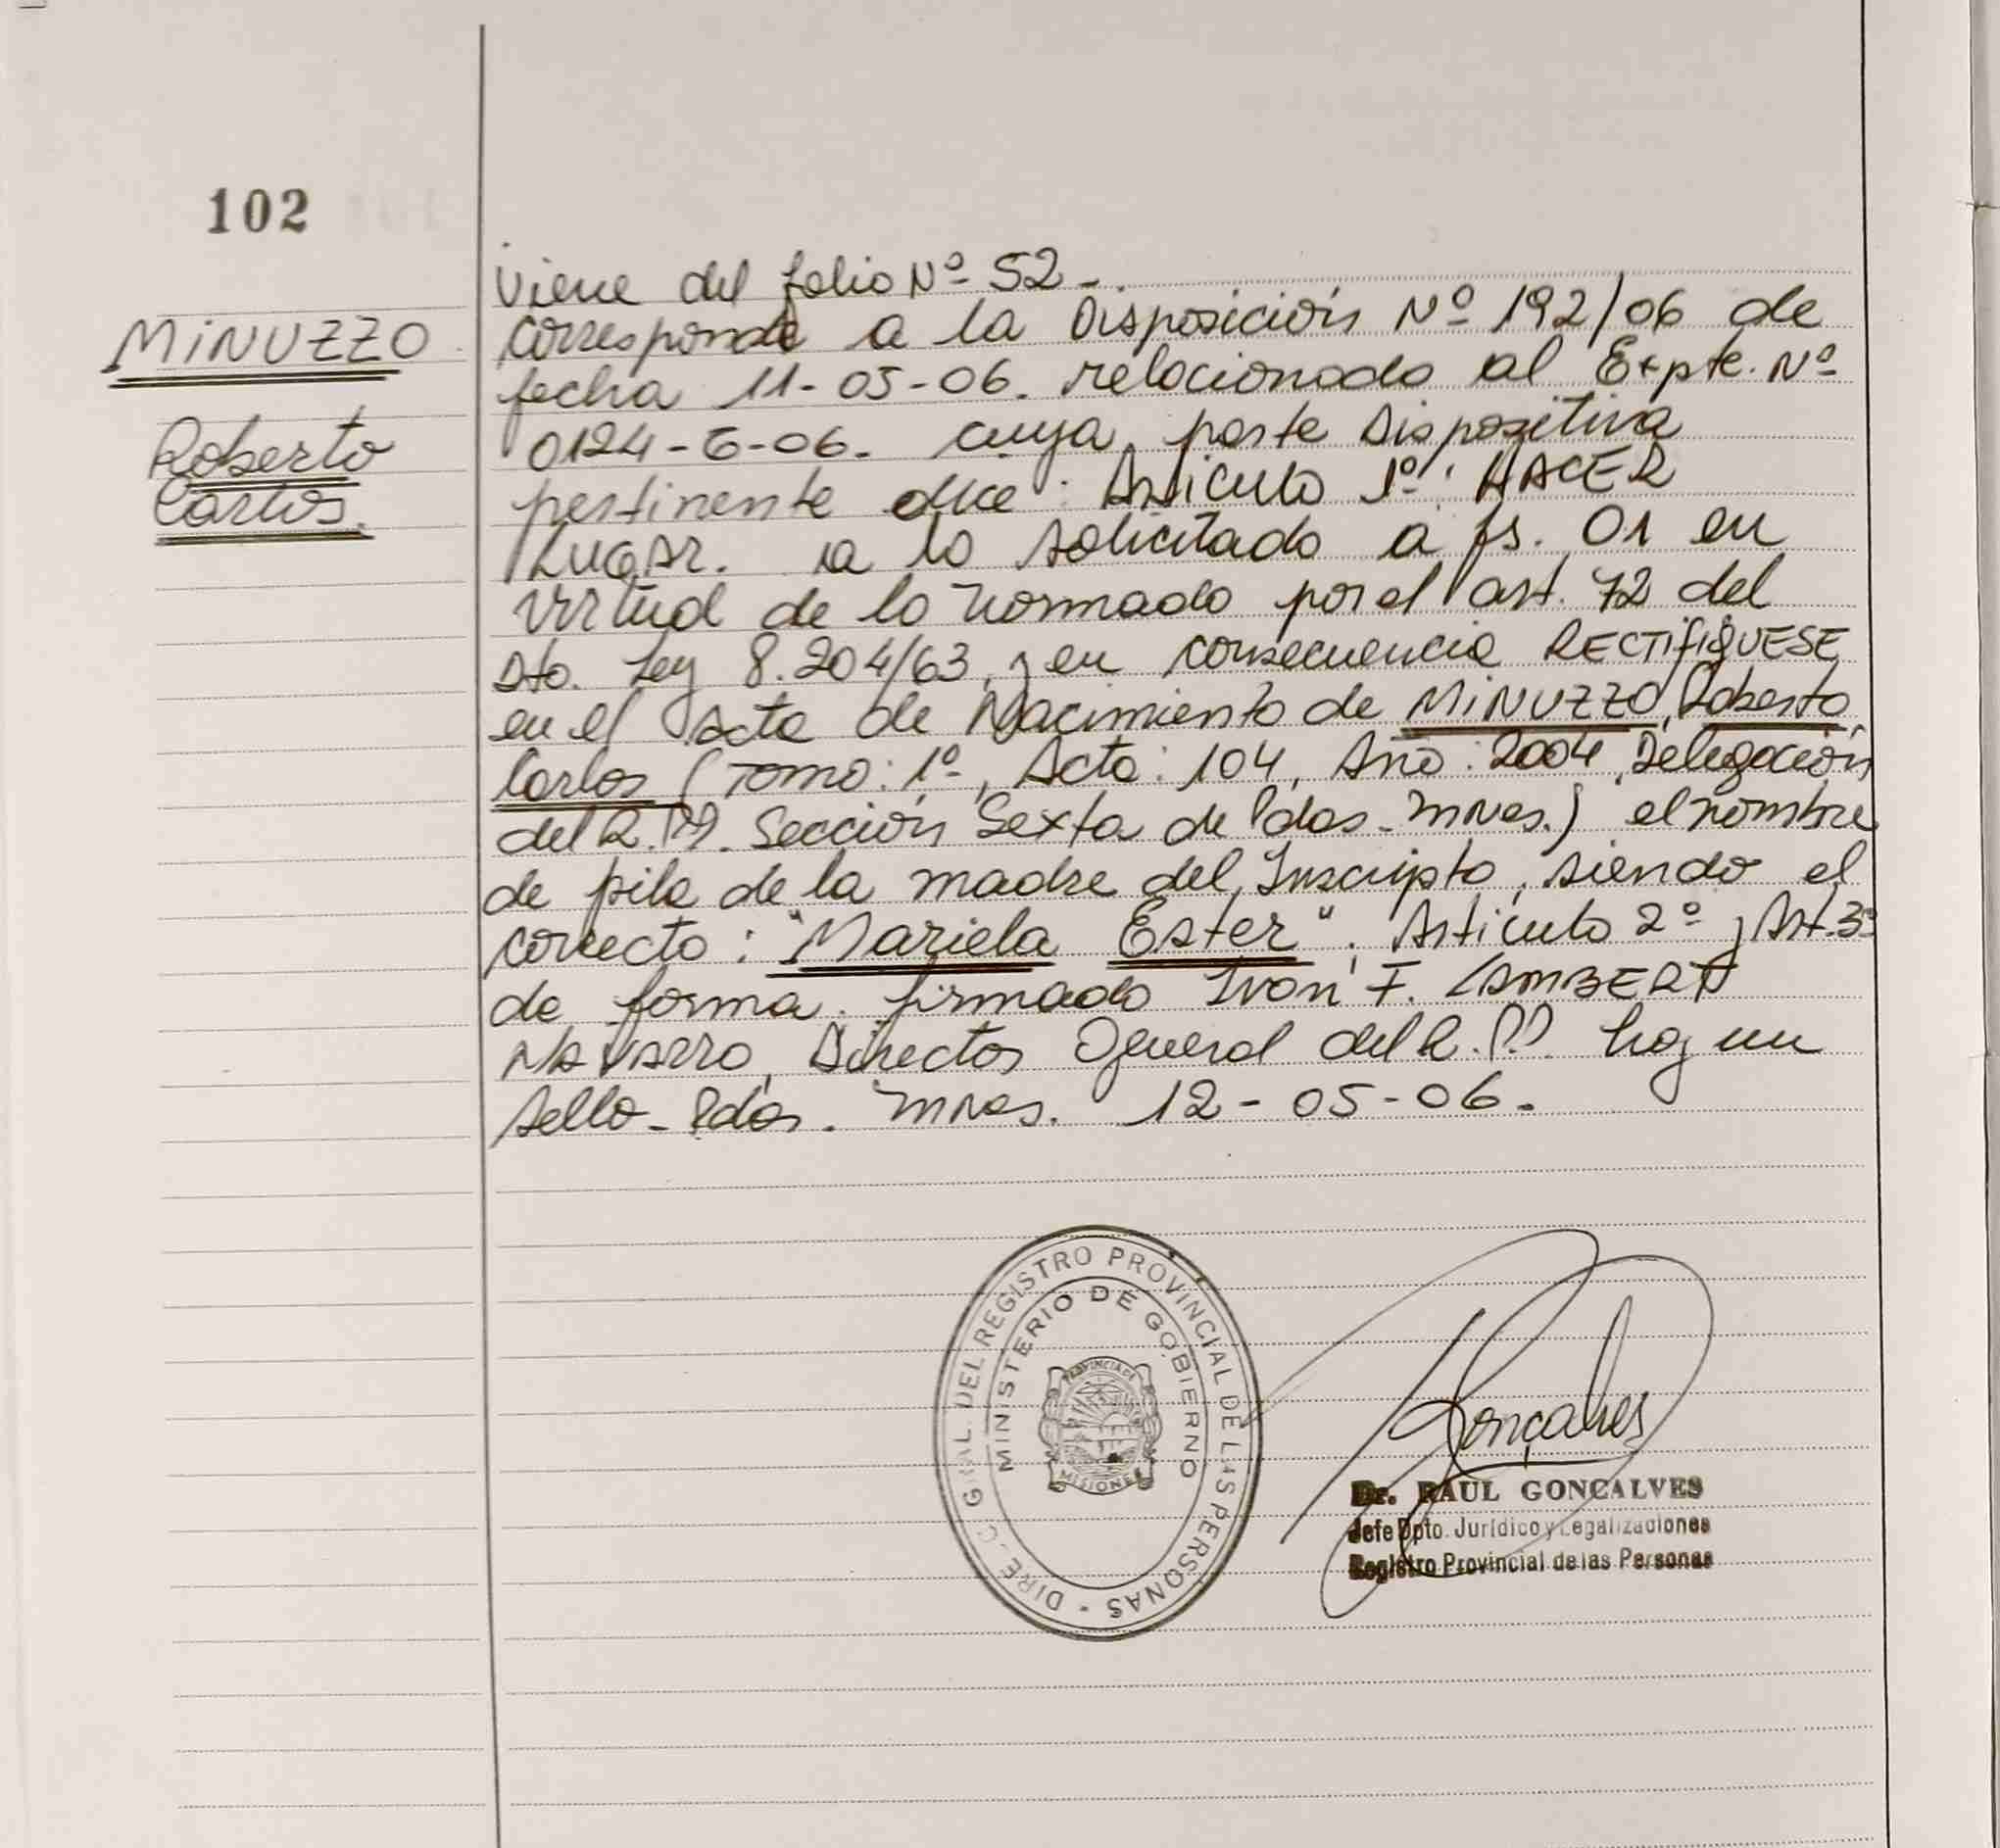 102
MINUZZO
Roberto
Carlos.
Viene del folio Nº 52-.
Corresponde a la Disposición Nº 192/06 de
fecha 11-05-06. relacionado al Expte. Nº
0124-6-06. cuya parte Dispositiva
pertinente dice: Artículo 1º: HACER
LUGAR. a lo solicitado a fs. 01 en
virtud de lo normado por el art. 72 del
Dto. Ley 8.204/63, y en consecuencia RECTIFIQUESE
en el Acta de Nacimiento de MINUZZO, Roberto
Carlos (Tomo: 1º, Acta: 104, Año: 2004, Delegación
del R.PP. Sección Sexta de Pdas. Mnes.) el nombre
de pila de la madre del Inscripto, siendo el
correcto: "Mariela Ester". Artículo 2º y Art. 3º
de forma. firmado Ivon F. LAMBERT
NAVARRO, Director General del R.PP. hay un
sello- Pdas. Mnes. 12-05-06.
DIREC. GRAL. DEL REGISTRO PROVINCIAL DE LAS PERSONAS -
MINISTERIO DE GOBIERNO
PROVINCIA DE
MISIONES
Gonçalves
Dr. RAUL GONCALVES
Jefe Dpto. Jurídico y Legalizaciones
Registro Provincial de las Personas